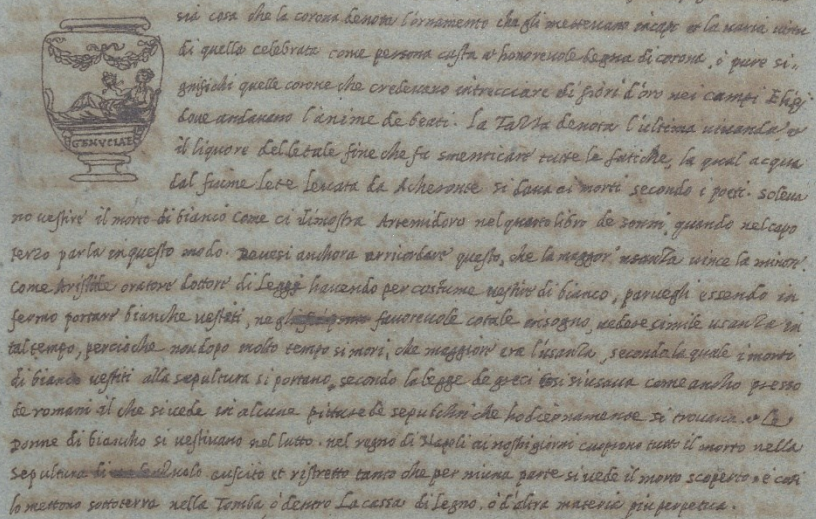 sia cosa che la corona denota l'ornamento che gli metteuano in capo et la
di quella celebrata come persona casta et honoreuole degna di corona, o pure si,,
gnifichi quelle corone che credeuano intrecciare di fiori d'oro nei campi Elisij
doue andauano l'anime de beati. La Tazza denota l'ultima uiuanda, et
il liquore del letale fine che fa smenticare tutte le fatiche, la qual acqua
dal fiume lete leuata da Acheronte si daua ai morti secondo i poeti. soleua
GENVCIAE
no uestire il morto di bianco come ci dimostra Artemidoro nel quarto libro de sonni, quando nel capo
terzo parla in questo modo. Deuesi anchora arricordare questo, che la maggior usanza uince la minore.
Come Aristide oratore dottore di Legge hauendo per costume uestire di bianco, paruegli essendo in
fermo portare bianche uesteti, ne gli favoreuole cotale insogno, uedere simile usanza in
tal tempo, percioche non dopo molto tempo si mori, che maggiore era l'usanza, secondo la quale i morti
di bianco uestiti alla sepultura si portano, secondo la legge de greci cosi si usaua come ancho presso
de romani il che si uede in alcune pitture de sepulchri che hodiernamente si trouano. et Le
Donne di biancho si uestiuano nel lutto. nel regno di Napoli ai nostri giorni cuoprono tutto il morto nella
sepultura cuscito et ristretto tanto che per niuna parte si uede il morto scoperto, e cosi
lo mettono sottoterra nella Tomba o dentro La cassa di Legno, o d'altra materia piu perpetua.